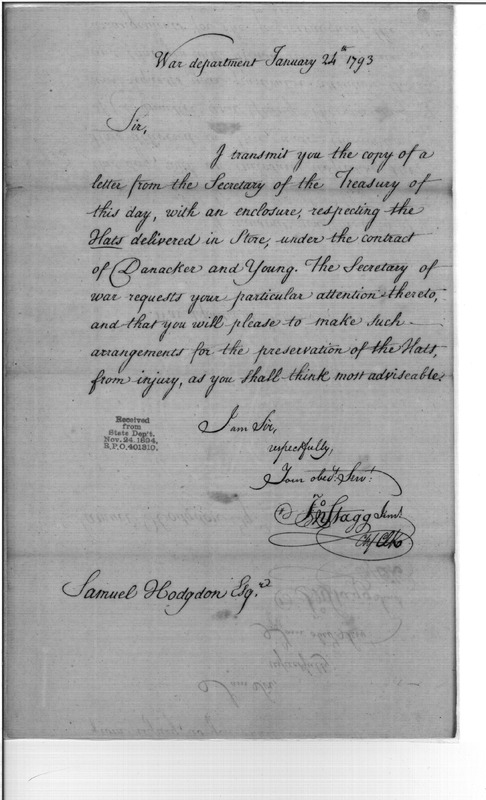 War department January 24th 1793
Sir,
I transmit you the copy of a
letter from the Secretary of the Treasury of
this day, with an enclosure, respecting the
Hats delivered in Store, under the contract
of Danacker and Young. The Secretary of
war requests your particular attention thereto,
and that you will please to make such
arrangements for the preservation of the Hats,
from injury, as you shall think most adviseable.
I am Sir,
respectfully,
Your obedt. Servt.
Jno Stagg Junr.
Chf Clk
Received
from
State Dep't.
Nov. 24, 1894,
R.P.O. 401310.
Samuel Hodgdon Esqre